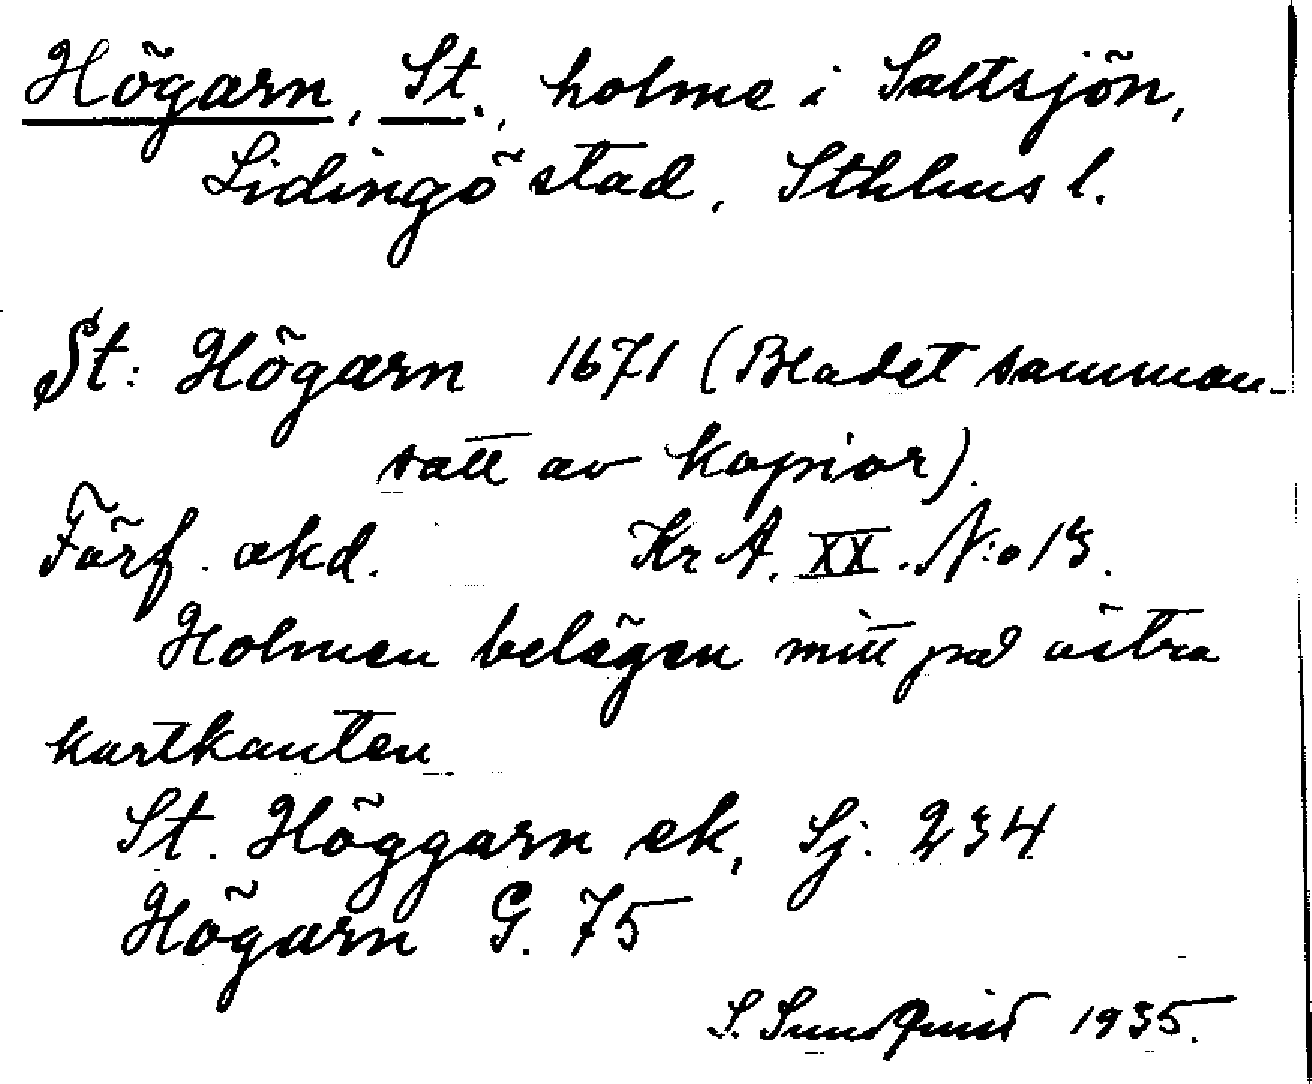 Högarn, St., holme i Saltsjön,
Lidingö stad, Sthlms l.
St: Högarn 1671 (Bladet samman-
satt av kopior).
Förf. okd. Kr A. XX. N:o 13.
Holmen belägen mitt på östra
kartkanten
St. Höggarn ek, Sj. 234
Högarn G. 75
S. Sundquist 1935.